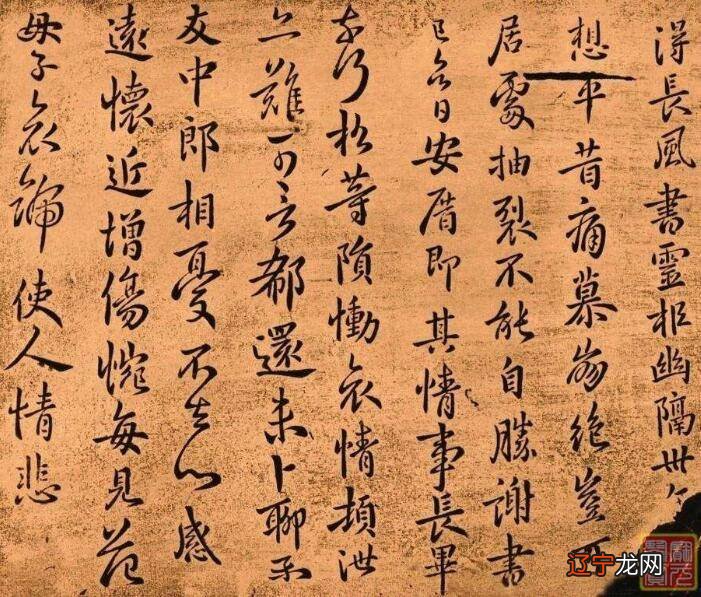 得長風書靈柩幽隔卅
想平昔痛慕崩絶豈
居處抽裂不能自勝謝書
已合日安厝即其情事長畢
奈何松等隕慟哀情頓泄
亦難可言郗還未卜聊示
友中郎相憂不去心感
遠懷近增傷惋每見范
母子哀號使人情悲
辽宁龙网